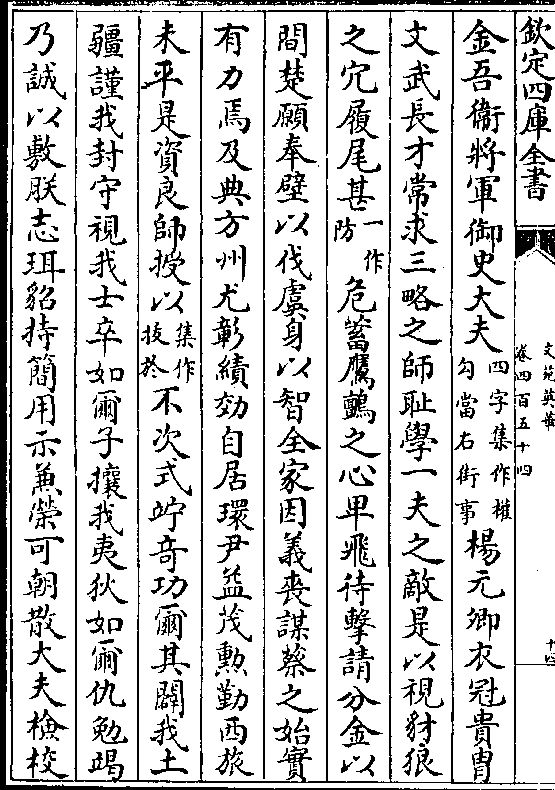 欽定四庫全書
文苑英華
卷四百五十四
十四
金吾衞將軍御史大夫四字集作權勾當右街事楊元卿衣冠貴胄
文武長才常求三略之師耻學一夫之敵是以視豺狼
之穴履尾甚一作防危蓄鷹鸇之心卑飛待擊請分金以
間楚願奉壁以伐虞身以智全家因義喪謀蔡之始實
有力焉及典方州尤彰績効自居環尹益茂勲勤西旅
未平是資良師授以集作授於不次式竚竒功爾其闢我土
疆謹我封守視我士卒如爾子攘我夷狄如爾仇勉竭
乃誠以敷朕志珥貂持簡用示兼榮可朝散大夫檢校